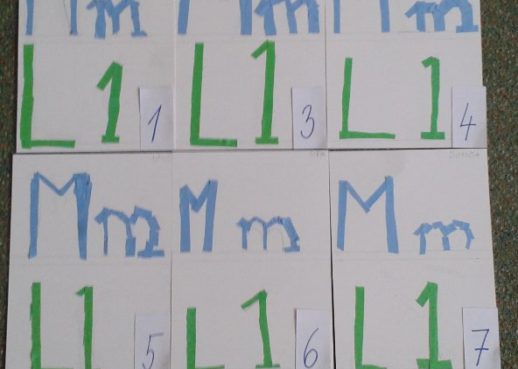 Mm Mm Mm
L1 1 L1 3 L1 4
Mm Mm Mm
L1 5 L1 6 L1 7